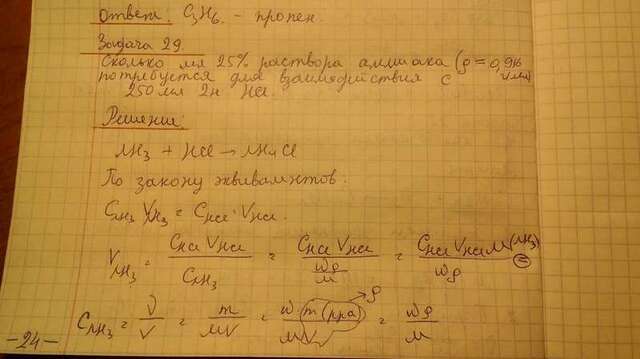 Ответ: C3H6 – пропен.
Задача 29.
Сколько мл 25% раствора аммиака (ρ = 0,916 г/мл)
потребуется для взаимодействия с
250 мл 2н HCl.
Решение:
NH3 + HCl → NH4Cl
По закону эквивалентов:
CNH3 VNH3 = CHCl · VHCl.
VNH3 = CHCl VHCl / CNH3 = CHCl VHCl / (ωρ / M) = CHCl VHCl M(NH3) / ωρ =
CNH3 = ν / V = m / MV = ω m (р-ра) / MV = ωρ / M
ρ
-24-